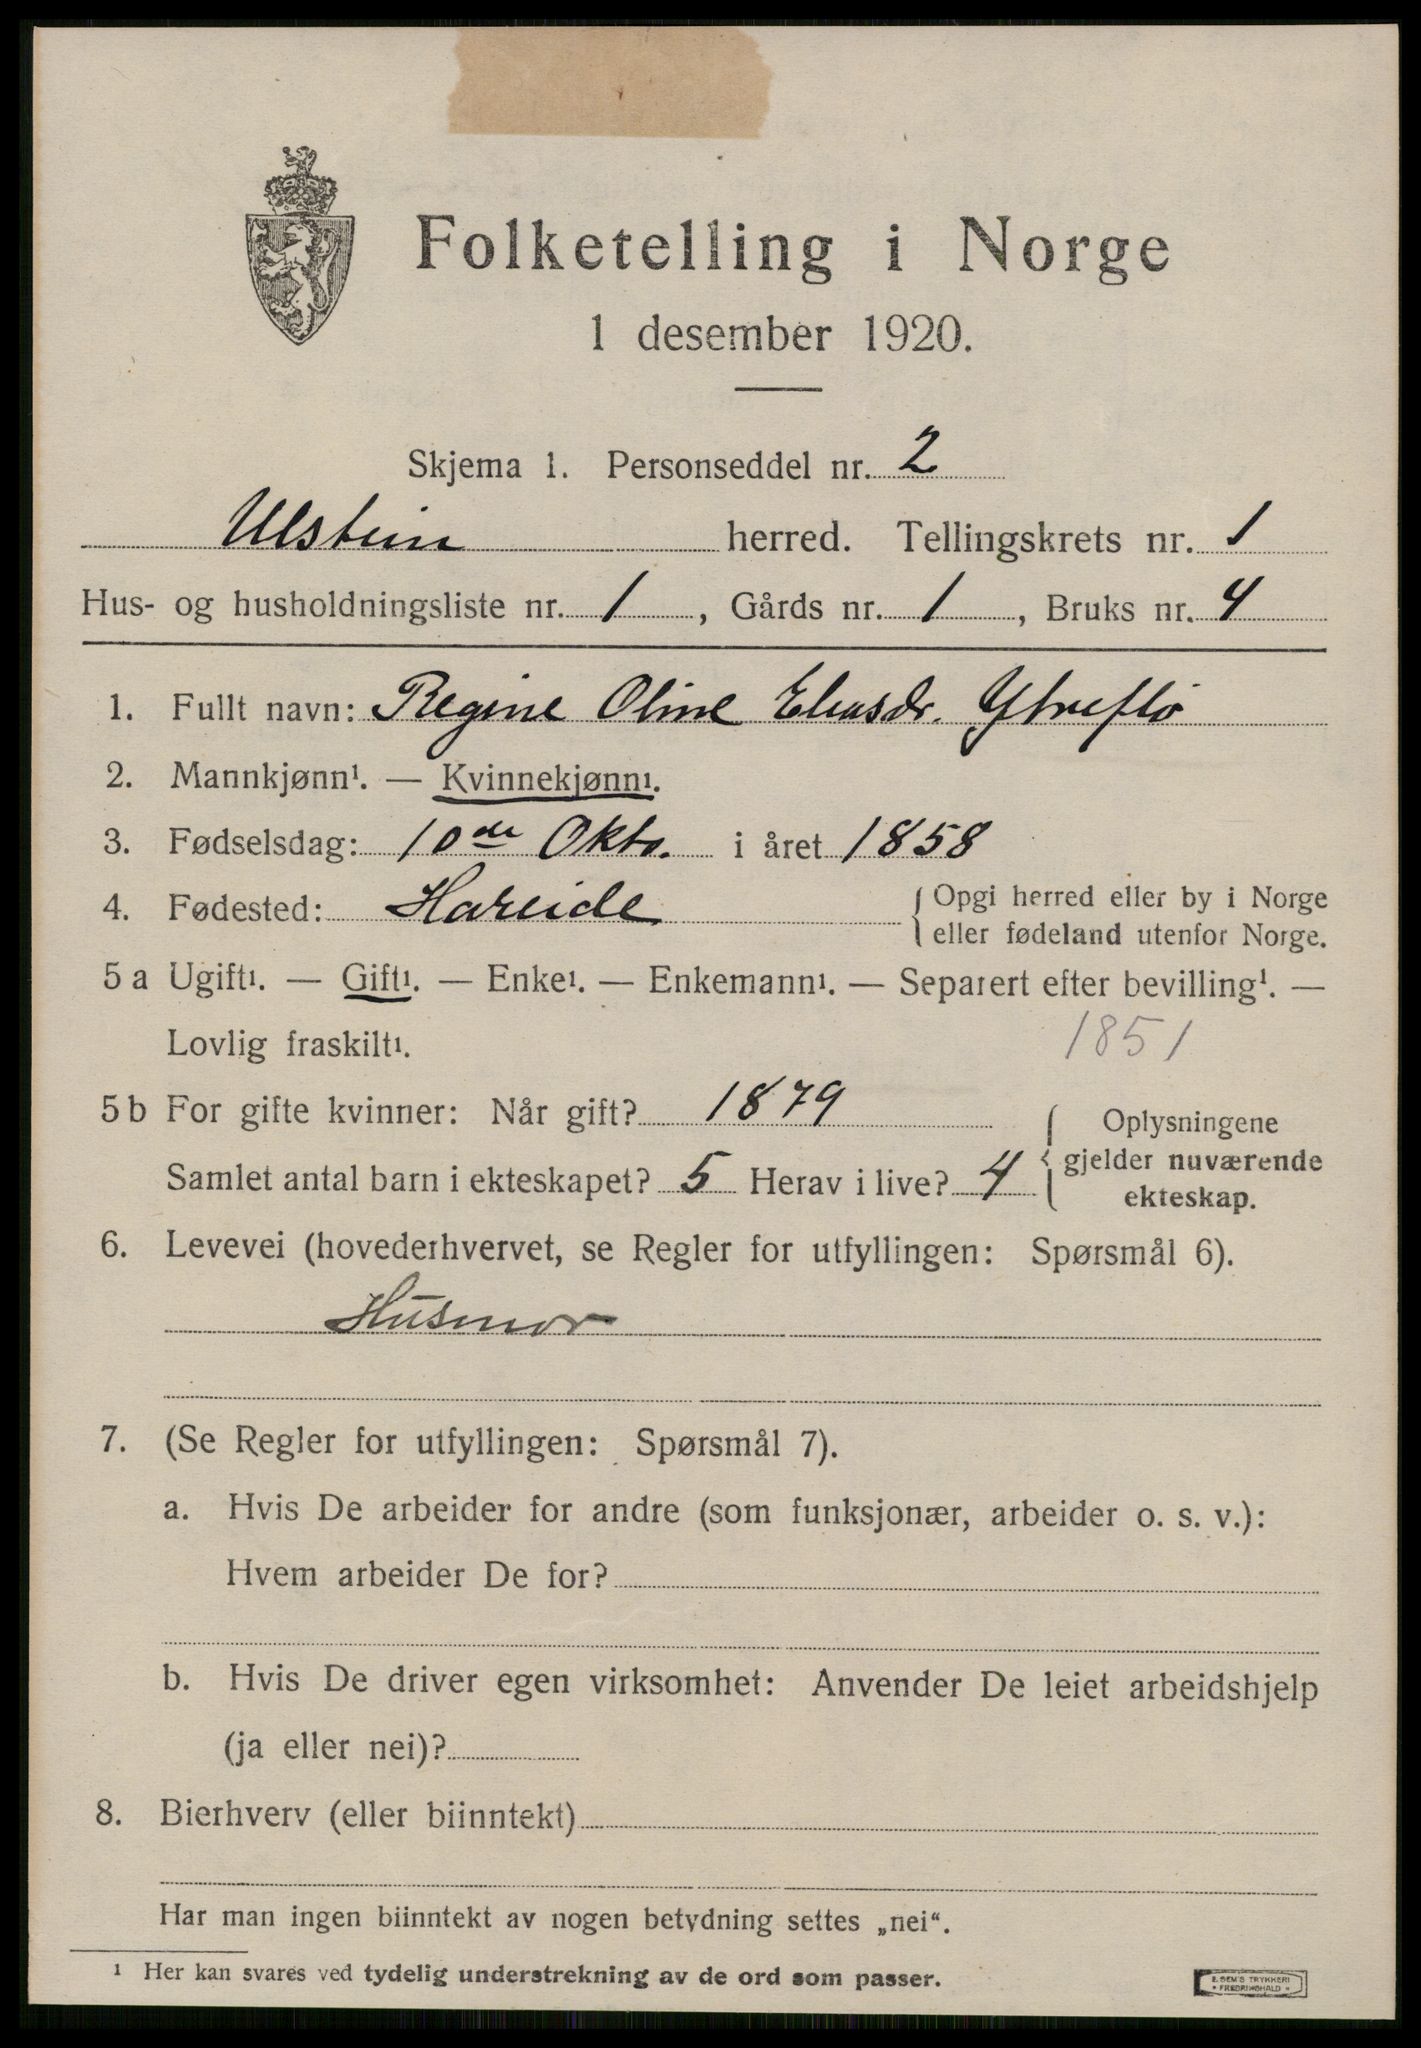 Folketelling i Norge
1 desember 1920.
Skjema 1. Personseddel nr. 2
Ulstein herred. Tellingskrets nr. 1
Hus- og husholdningsliste nr. 1, Gårds nr. 1, Bruks nr. 4
1. Fullt navn: Regine Oline Eliasdr. Ytreflø
2. Mannkjønn¹. — Kvinnekjønn¹.
3. Fødselsdag: 10de Oktb. i året 1858
4. Fødested: Hareide { Opgi herred eller by i Norge
eller fødeland utenfor Norge.
5 a Ugift¹. — Gift¹. — Enke¹. — Enkemann¹. — Separert efter bevilling¹. —
Lovlig fraskilt¹. 1851
5 b For gifte kvinner: Når gift? 1879 { Oplysningene
Samlet antal barn i ekteskapet? 5 Herav i live? 4 gjelder nuværende
ekteskap.
6. Levevei (hovederhvervet, se Regler for utfyllingen: Spørsmål 6).
Husmor
7. (Se Regler for utfyllingen: Spørsmål 7).
a. Hvis De arbeider for andre (som funksjonær, arbeider o. s. v.):
Hvem arbeider De for?
b. Hvis De driver egen virksomhet: Anvender De leiet arbeidshjelp
(ja eller nei)?
8. Bierhverv (eller biinntekt)
Har man ingen biinntekt av nogen betydning settes „nei“.
¹ Her kan svares ved tydelig understrekning av de ord som passer.
E. SEM'S TRYKKERI
• FREDRIKSHALD •